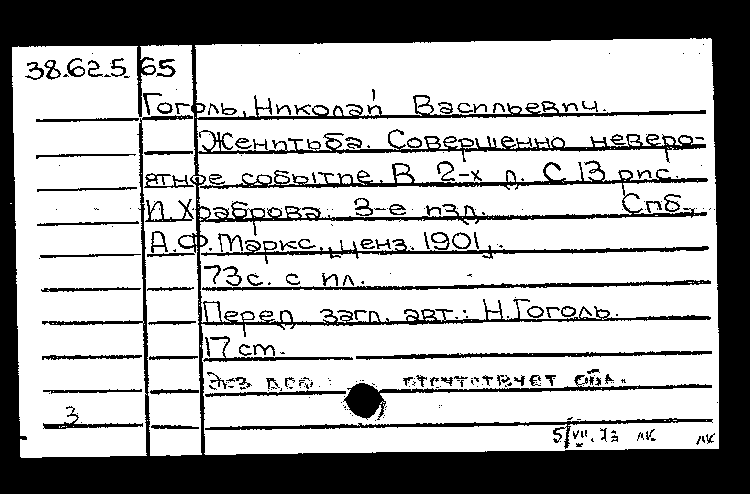 38.62.5 65
Гоголь, Николай Васильевич.
Женитьба. Совершенно неверо-
ятное событие. В 2-х д. С 13 рис.
И. Храброва. 3-е изд. Спб.,
А.Ф. Маркс, ценз. 1901.
73 с. с ил.
Перед загл. авт.: Н. Гоголь.
17 см.
Экз. отсутствует обл.
3
5/VII.73 лк лк